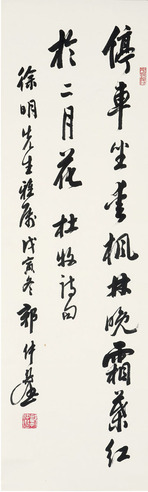 停車坐愛楓林晚霜葉紅
於二月花 杜牧詩句
徐明先生雅屬 戊寅冬 郭仲選